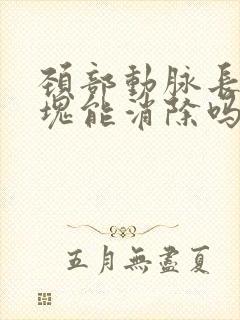 頚部動脉長
塊能消除吗
五月無盡夏